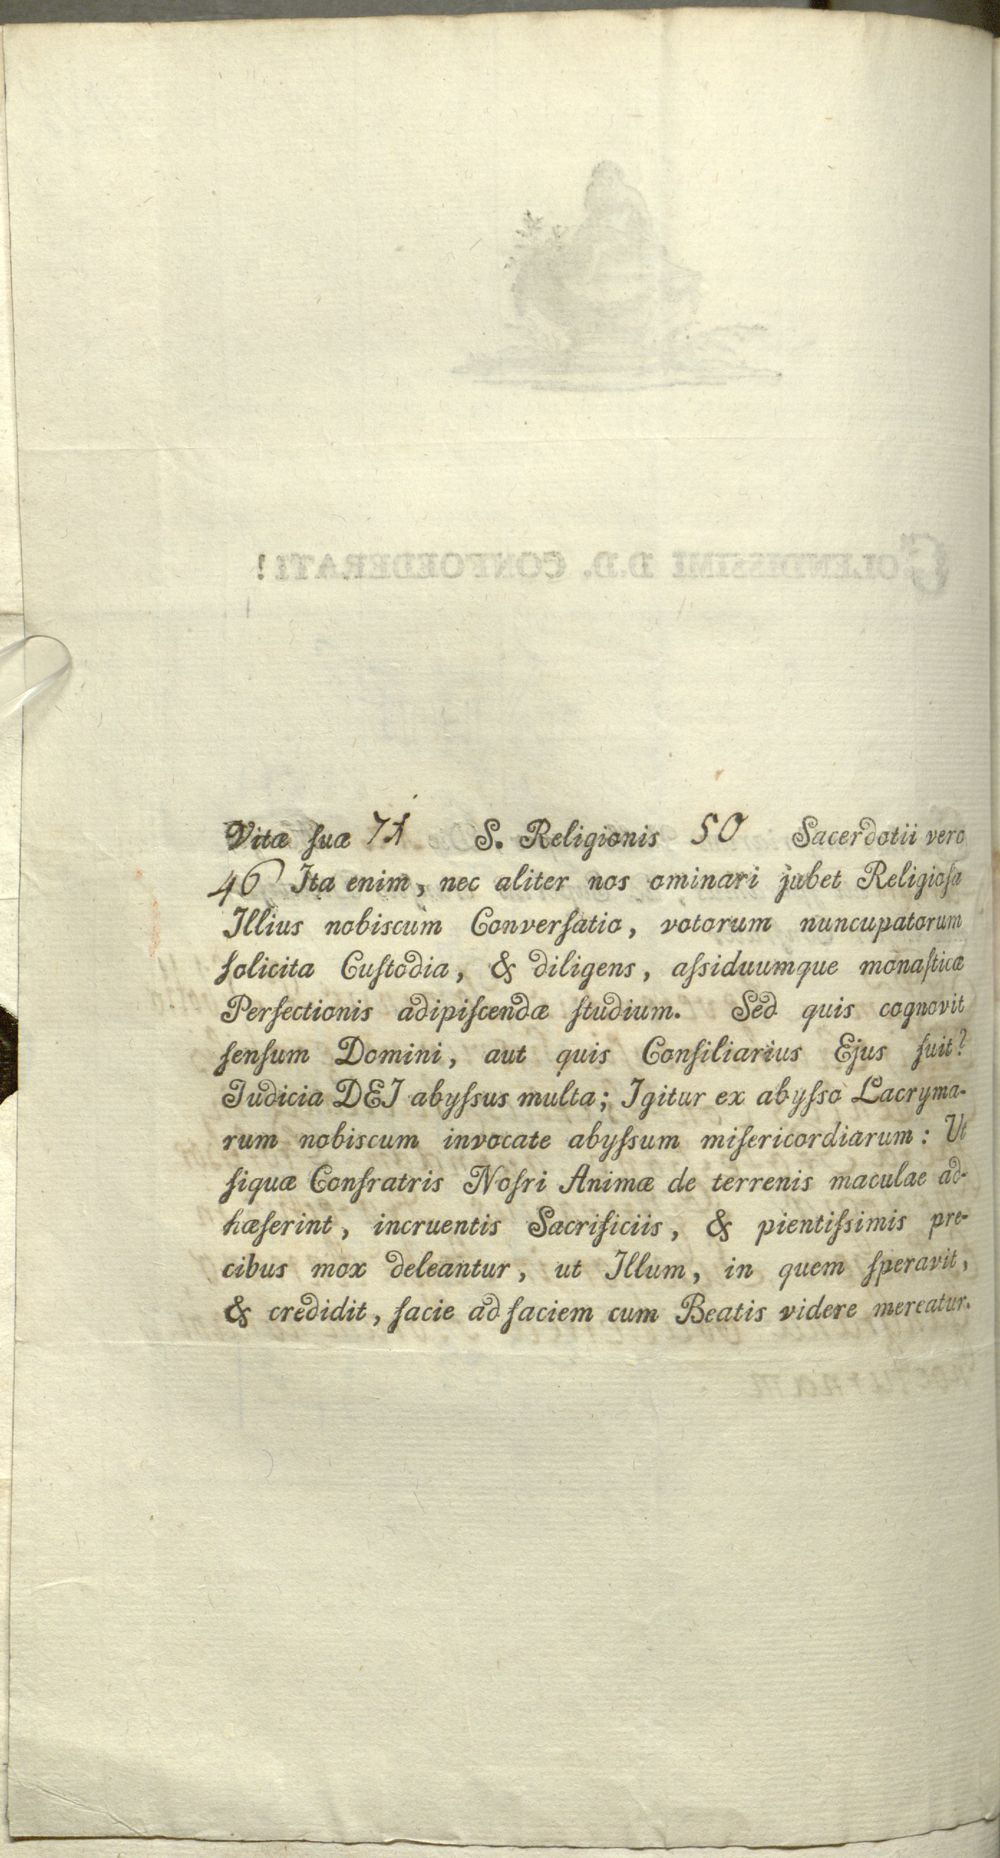 Vitæ ſuæ 71 S. Religionis 50 Sacerdotii vero
46 Ita enim, nec aliter nos ominari jubet Religioſa
Illius nobiscum Converſatio, votorum nuncupatorum
ſolicita Cuſtodia, & diligens, aſsiduumque monaſticæ
Perfectionis adipiſcendæ ſtudium. Sed quis cognovit
ſenſum Domini, aut quis Conſiliarius Ejus fuit?
Iudicia DEI abyſsus multa; Igitur ex abyſso Lacryma-
rum nobiscum invocate abyſsum miſericordiarum: Ut
ſiquæ Confratris Noſri Animæ de terrenis maculae ad-
hæſerint, incruentis Sacrificiis, & pientiſsimis pre-
cibus mox deleantur, ut Illum, in quem ſperavit,
& credidit, facie ad faciem cum Beatis videre mereatur.
COLENDISSIMI D.D. CONFOEDERATI!